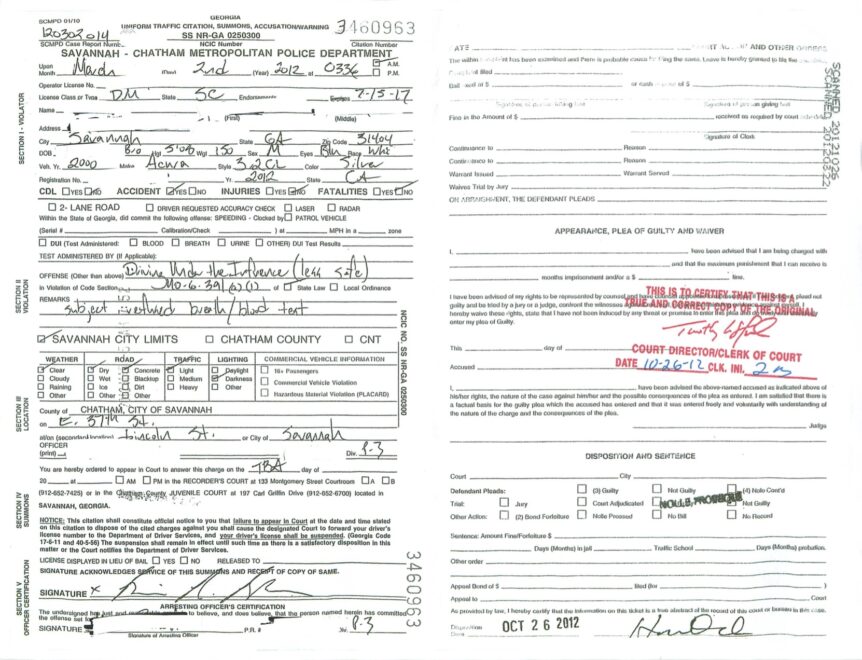 GEORGIA
SCMPD 01/10
UNIFORM TRAFFIC CITATION, SUMMONS, ACCUSATION/WARNING
3460963
120302014
SS NR-GA 0250300
SCMPD Case Report Number
NCIC Number
Citation Number
SAVANNAH - CHATHAM METROPOLITAN POLICE DEPARTMENT
Upon Month March (Day) 2nd (Year) 2012 at 0336 A.M. P.M.
SECTION I - VIOLATOR
Operator License No.
License Class or Type DM State SC Endorsements Expires 7-15-17
Name
(First) (Middle)
Address
City Savannah State GA Zip Code 31404
DOB Hgt 5'08 Wgt 150 Sex M Eyes Race Whi
Veh. Yr. 2000 Make Acura Style 3.2CL Color Silver
Registration No. Yr. 2012 State
CDL YES NO ACCIDENT YES NO INJURIES YES NO FATALITIES YES NO
2- LANE ROAD DRIVER REQUESTED ACCURACY CHECK LASER RADAR
Within the State of Georgia, did commit the following offense: SPEEDING - Clocked by PATROL VEHICLE
(Serial # Calibration/Check ) at MPH in a zone
DUI (Test Administered: BLOOD BREATH URINE OTHER) DUI Test Results
TEST ADMINISTERED BY (If Applicable):
SECTION II VIOLATION
OFFENSE (Other than above) Driving Under the Influence (less safe)
in Violation of Code Section 40-6-391(a)(1) of State Law Local Ordinance
REMARKS
subject refused breath/blood test
SAVANNAH CITY LIMITS CHATHAM COUNTY CNT
NCIC NO. SS NR-GA 0250300
SECTION III LOCATION
WEATHER ROAD TRAFFIC LIGHTING COMMERCIAL VEHICLE INFORMATION
Clear Dry Concrete Light Daylight 16+ Passengers
Cloudy Wet Blacktop Medium Darkness Commercial Vehicle Violation
Raining Ice Dirt Heavy Other
Other Other Other Hazardous Material Violation (PLACARD)
County of CHATHAM, CITY OF SAVANNAH
on E. 37TH St.
at/on (secondary location) Lincoln St. or City of Savannah
OFFICER
(print) Div. P-3
You are hereby ordered to appear in Court to answer this charge on the TBA day of
20 at AM PM in the RECORDER'S COURT at 133 Montgomery Street Courtroom A B
SECTION IV SUMMONS
(912-652-7425) or in the Chatham County JUVENILE COURT at 197 Carl Griffin Drive (912-652-6700) located in
SAVANNAH, GEORGIA.
NOTICE: This citation shall constitute official notice to you that failure to appear in Court at the date and time stated
on this citation to dispose of the cited charges against you shall cause the designated Court to forward your driver's
license number to the Department of Driver Services, and your driver's license shall be suspended. (Georgia Code
17-6-11 and 40-5-56) The suspension shall remain in effect until such time as there is a satisfactory disposition in this
matter or the Court notifies the Department of Driver Services.
LICENSE DISPLAYED IN LIEU OF BAIL YES NO RELEASED TO
SIGNATURE ACKNOWLEDGES SERVICE OF THIS SUMMONS AND RECEIPT OF COPY OF SAME.
SIGNATURE X
3460963
SECTION V OFFICER CERTIFICATION
ARRESTING OFFICER'S CERTIFICATION
The undersigned has just and to believe, and does believe, that the person named herein has committed
the offense set
SIGNATURE P.R.# Div. P-3
Signature of Arresting Officer
AND OTHER ORDERS
The within has been examined and there is probable cause for filing the same. Leave is hereby granted to file
filed
Bail $ or cash $
Signature of person giving bail
Fine in the Amount of $ received as required by court
Signature of Clerk
SCANNED 20121026
SCANNED 20120822
Continuance to Reason
Continuance to Reason
Warrant Issued Warrant Served
Waives Trial by Jury
ON ARRAIGNMENT, THE DEFENDANT PLEADS
APPEARANCE, PLEA OF GUILTY AND WAIVER
I, have been advised that I am being charged with
and that the maximum punishment that I can receive is
months imprisonment and/or a $ fine.
I have been advised of my rights to be represented by counsel, plead not
guilty and be tried by a jury or a judge, confront the witnesses
hereby waive these rights, state that I have not been induced by any threat or promise to enter this plea
enter my plea of Guilty.
THIS IS TO CERTIFY THAT THIS IS A
TRUE AND CORRECT COPY OF THE ORIGINAL
This day of
COURT DIRECTOR/CLERK OF COURT
Accused
DATE 10-26-12 CLK. INI.
I, have been advised the above-named accused as indicated above of
his/her rights, the nature of the case against him/her and the possible consequences of the plea as entered. I am satisfied that there is
a factual basis for the guilty plea which the accused has entered and that it was entered freely and voluntarily with understanding of
the nature of the charge and the consequences of the plea.
Judge
DISPOSITION AND SENTENCE
Court City
Defendant Pleads: (3) Guilty Not Guilty (4) Nolo Cont'd
Trial: Jury Court Adjudicated NOLLE PROSEQUI Not Guilty
Other Action: (2) Bond Forfeiture Nolle Prossed No Bill No Record
Sentence: Amount Fine/Forfeiture $
Days (Months) in jail Traffic School Days (Months) probation.
Other order
Appeal Bond of $ filed (for )
Appeal to Court
As provided by law, I hereby certify that the information on this ticket is a true abstract of the record of this court or bureau in this case.
Disposition Date OCT 26 2012